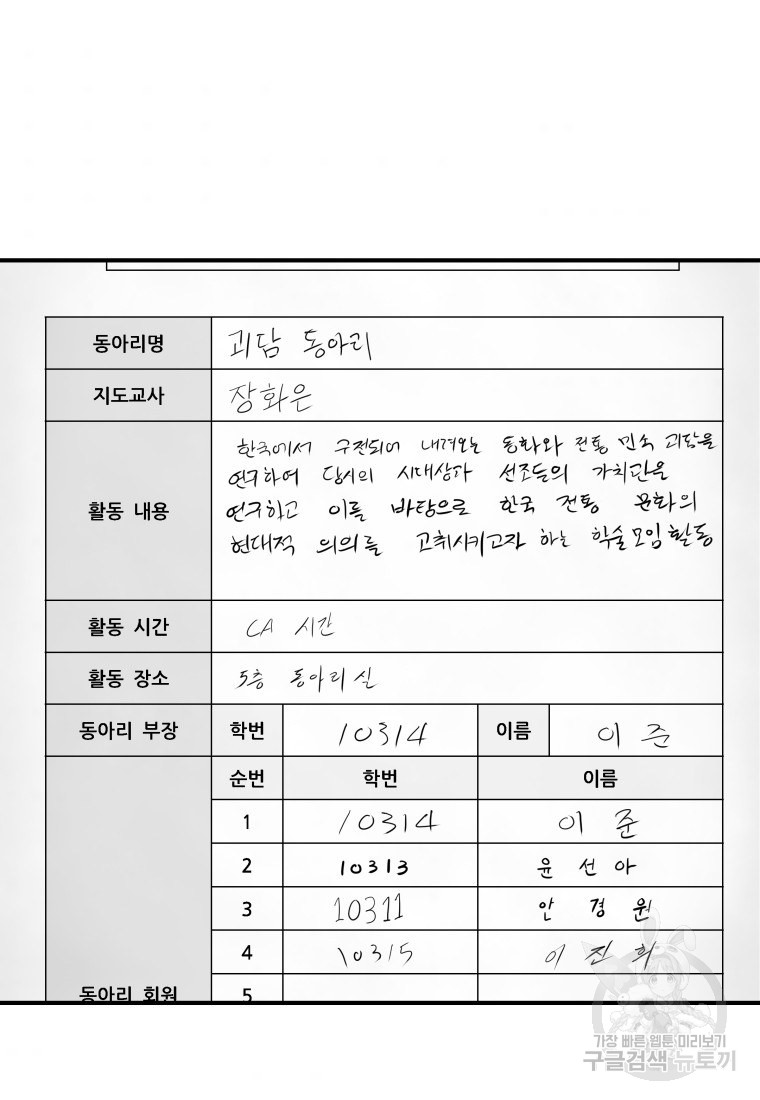 동아리명 괴담 동아리
지도교사 장화은
활동 내용
한국에서 구전되어 내려오는 동화와 전통 민속 괴담을
연구하여 당시의 시대상과 선조들의 가치관을
연구하고 이를 바탕으로 한국 전통 문화의
현대적 의의를 고취시키고자 하는 학술모임 활동
활동 시간 CA 시간
활동 장소 5층 동아리실
동아리 부장 학번 10314 이름 이 준
순번 학번 이름
1 10314 이 준
2 10313 윤 선 아
3 10311 안 경 원
4 10315 이 진 희
동아리 회원 5
가장 빠른 웹툰 미리보기
구글검색 뉴토끼